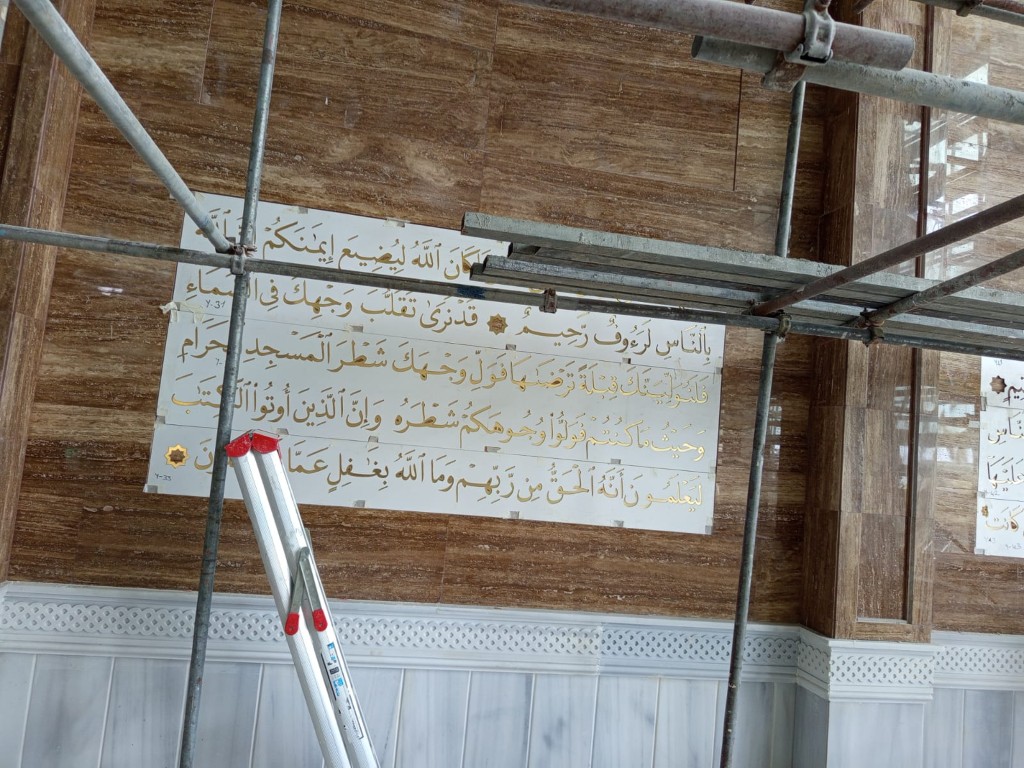 كَانَ ٱللَّهُ لِيُضِيعَ إِيمَٰنَكُمْ
بِٱلنَّاسِ لَرَءُوفٌ رَّحِيمٌ قَدْ نَرَىٰ تَقَلُّبَ وَجْهِكَ فِى ٱلسَّمَاءِ
فَلَنُوَلِّيَنَّكَ قِبْلَةً تَرْضَىٰهَا فَوَلِّ وَجْهَكَ شَطْرَ ٱلْمَسْجِدِ ٱلْحَرَامِ
وَحَيْثُ مَا كُنتُمْ فَوَلُّوا۟ وُجُوهَكُمْ شَطْرَهُ وَإِنَّ ٱلَّذِينَ أُوتُوا۟ ٱلْكِتَٰبَ
لَيَعْلَمُونَ أَنَّهُ ٱلْحَقُّ مِن رَّبِّهِمْ وَمَا ٱللَّهُ بِغَٰفِلٍ عَمَّا